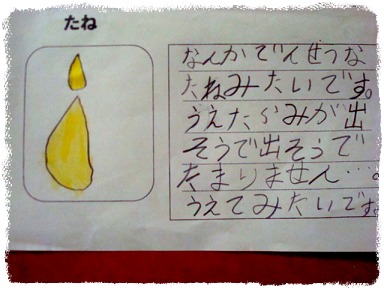 たね
なんかでんせつな
たねみたいです。
うえたらみが出
そうで出そうで
たまりません…。
うえてみたいです。